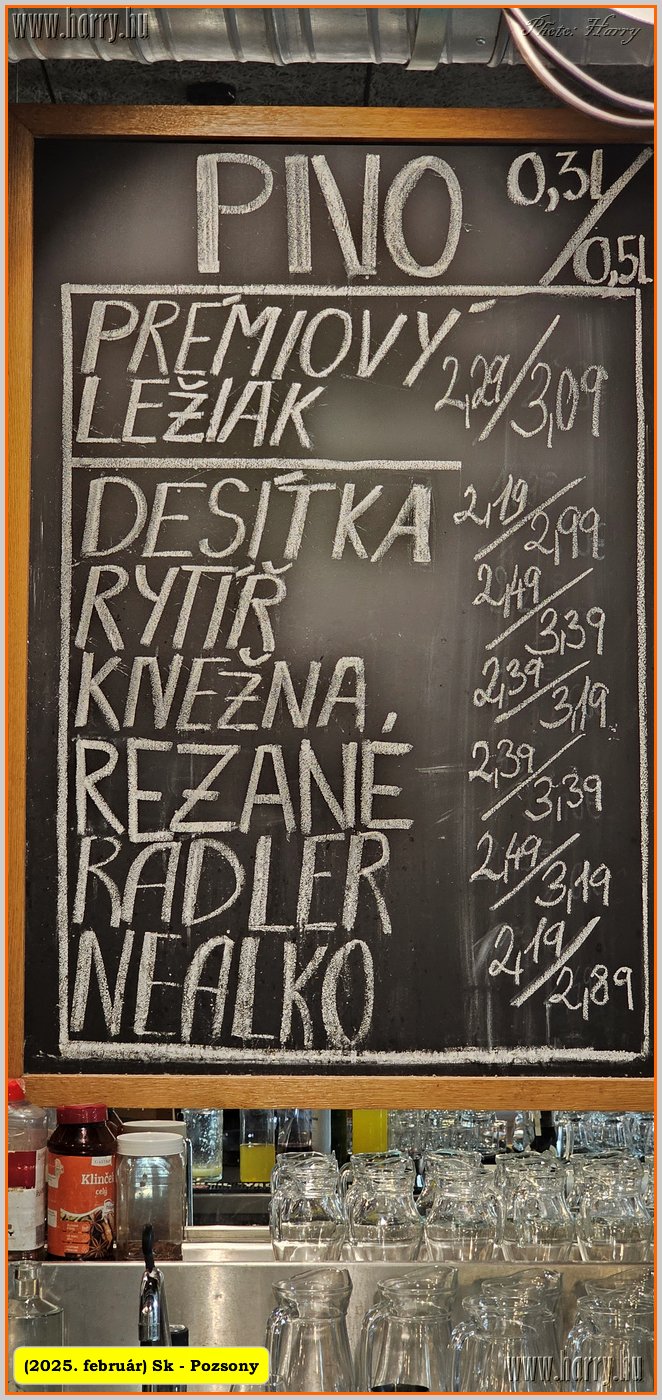 www.harry.hu
Photo: Harry
PIVO 0,3l/0,5l
PRÉMIOVÝ
LEŽIAK 2,29/3,09
DESÍTKA 2,19/2,99
RYTÍŘ 2,49/3,39
KNEŽNA 2,39/3,19
REZANÉ 2,39/3,39
RADLER 2,49/3,19
NEALKO 2,19/2,89
Klinček
celý
(2025. február) Sk - Pozsony
www.harry.hu